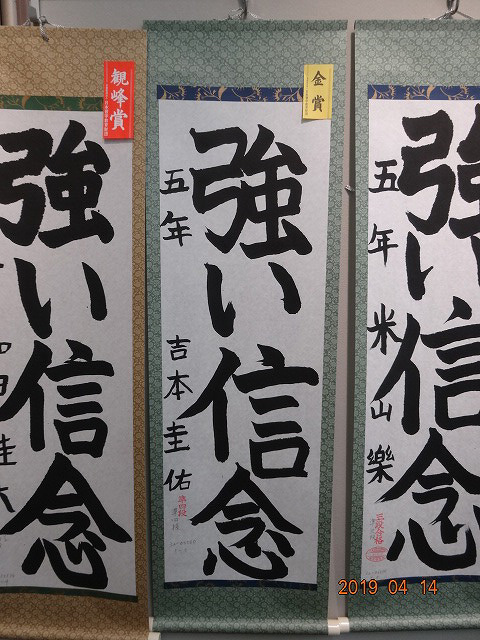 観峰賞
強い信念
金賞
強い信念
五年
吉本圭佑
強い信念
五年
米山樂
2019 04 14